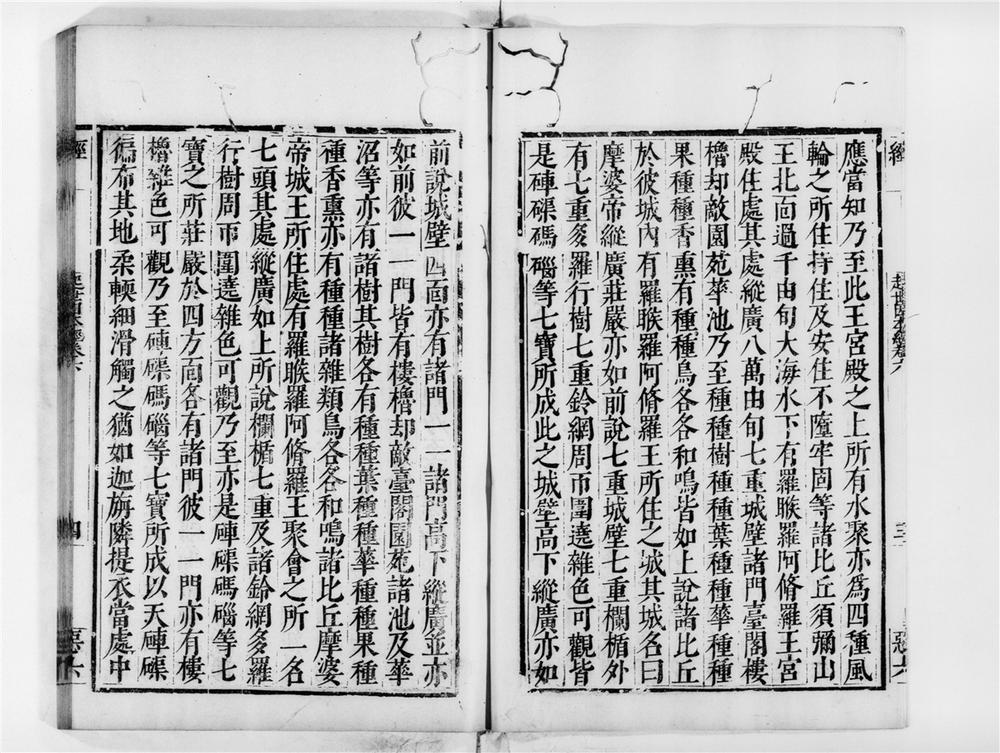 應當知乃至此王宮殿之上所有水聚亦爲四種風
輪之所住持住及安住不墮牢固等諸比丘須彌山
王北面過千由旬大海水下有羅睺羅阿脩羅王宮
殿住處其處縱廣八萬由旬七重城壁諸門臺閣樓
櫓却敵園苑華池乃至種種樹種種葉種種華種種
果種種香熏有種種鳥各各和鳴皆如上說諸比丘
於彼城內有羅睺羅阿脩羅王所住之城其城名曰
摩婆帝縱廣莊嚴亦如前說七重城壁七重欄楯外
有七重多羅行樹七重鈴網周帀圍遶雜色可觀皆
是硨磲碼碯等七寶所成此之城壁高下縱廣亦如
經
起世因本經卷六
三
惡六
前說城壁四面亦有諸門一一諸門高下縱廣並亦
如前彼一一門皆有樓櫓却敵臺閣園苑諸池及華
沼等亦有諸樹其樹各有種種葉種種華種種果種
種香熏亦有種種諸雜類鳥各各和鳴諸比丘摩婆
帝城王所住處有羅睺羅阿脩羅王聚會之所一名
七頭其處縱廣如上所說欄楯七重及諸鈴網多羅
行樹周帀圍遶雜色可觀乃至亦是硨磲碼碯等七
寶之所莊嚴於四方面各有諸門彼一一門亦有樓
櫓雜色可觀乃至硨磲碼碯等七寶所成以天硨磲
徧布其地柔輭細滑觸之猶如迦旃隣提衣當處中
經
四
惡六